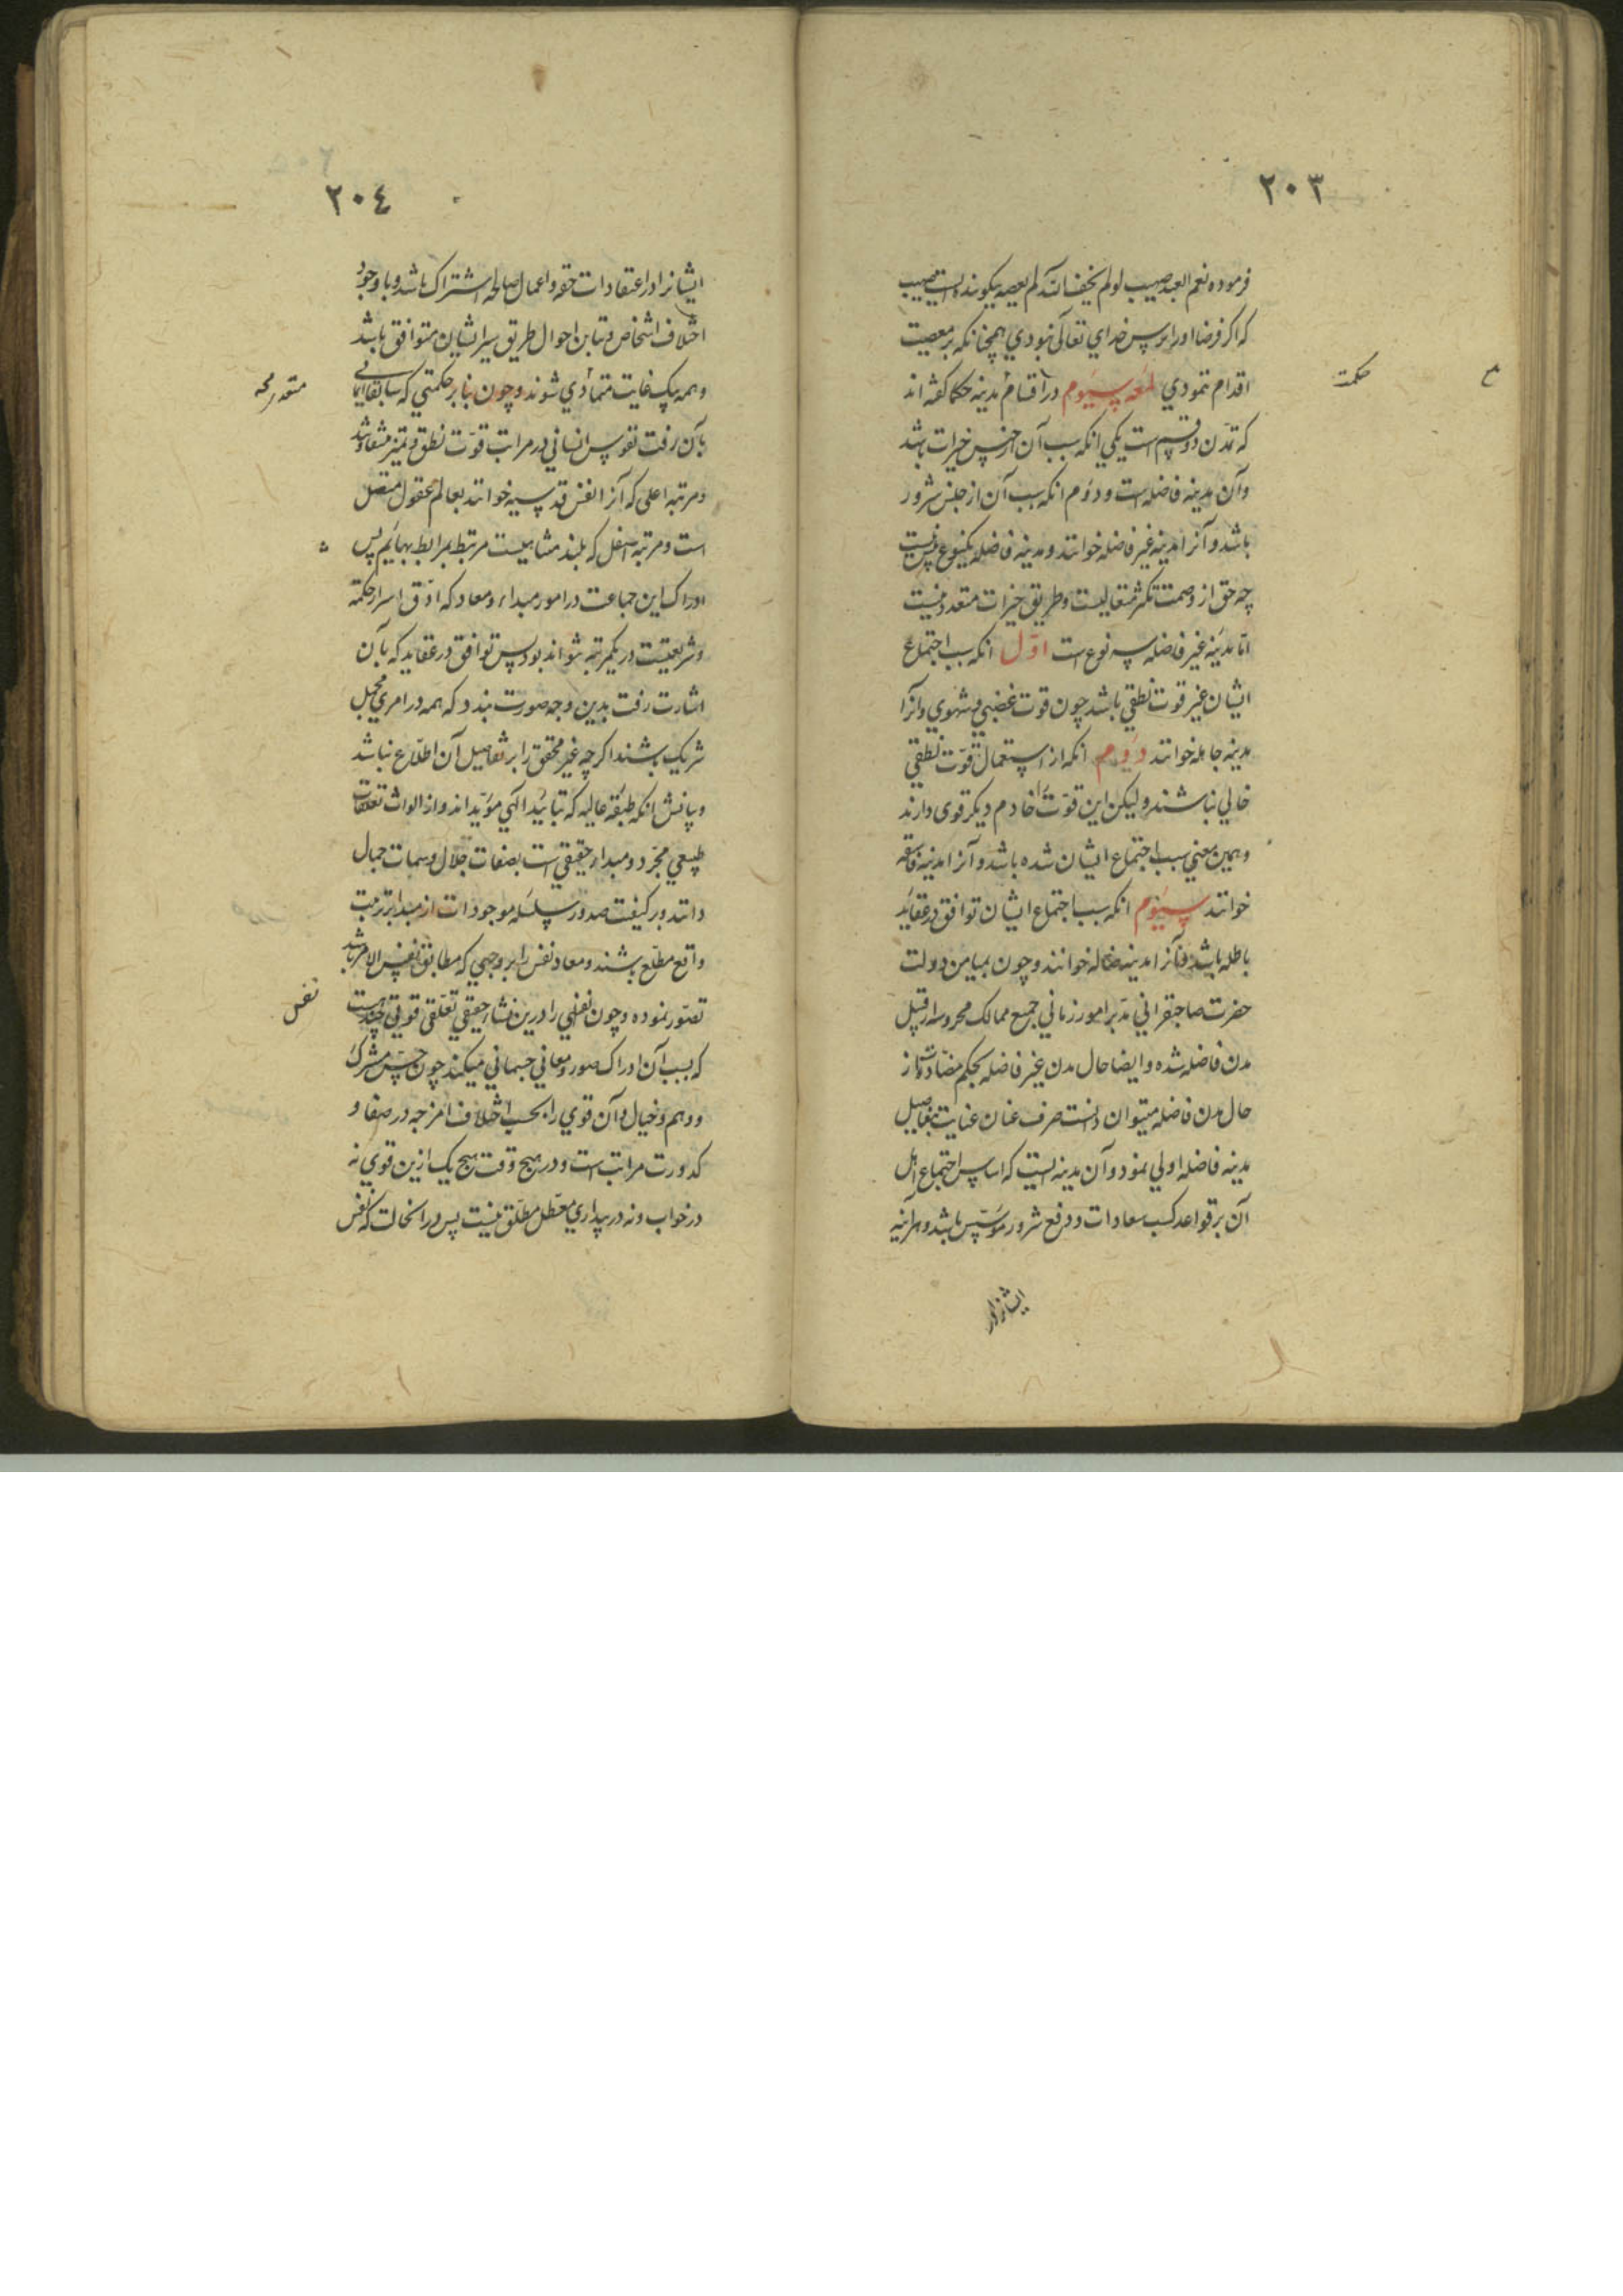 ٢٠٣
فرموده نعم العبد صهیب لو لم یخف الله لم یعصه یکو بنده‌ایست صهیب
که اکر فرضا اورا ترس خدای تعالی نبودی همچنانکه بر معصیت
اقدام ننمودی لمعه سیوم در اقسام مدینه حکما کفته اند
حکمت
که تمدن دو قسم است یکی انکه سبب آن از جنس خیرات باشد
وآن مدینه فاضله است و دوم انکه سبب آن از جنس شرور
باشد و آنرا مدینه غیر فاضله خوانند و مدینه فاضله یکنوع بیش نیست
چه حق از وصمت تکثر متعالیست و طریق خیرات متعدد نیست
اما مدینه غیر فاضله سه نوع است اول انکه سبب اجتماع
ایشان غیر قوت نطقی باشد چون قوت غضبی و شهوی و آنرا
مدینه جاهله خوانند دوم انکه از استعمال قوت نطقی
خالی نباشند و لیکن این قوت را خادم دیکر قوی دارند
و همین معنی سبب اجتماع ایشان شده باشد و آنرا مدینه فاسقه
خوانند سیوم انکه سبب اجتماع ایشان توافق در عقاید
باطله باشد و آنرا مدینه ضاله خوانند و چون بمیامن دولت
حضرت صاحبقرانی مدبر امور زمانی جمیع ممالک محروسه از قبیل
مدن فاضله شده و ایضا حال مدن غیر فاضله بحکم مضادت از
حال مدن فاضله میتوان دانست صرف عنان عنایت بتفاصیل
مدینه فاضله اولی نمود و آن مدینه ایست که اساس اجتماع اهل
آن بر قواعد کسب سعادات و دفع شرور مؤسس باشد و هراینه
ایشانرا در
٢٠٤
ایشانرا در اعتقادات حقه و اعمال صالحه اشتراک باشد و با وجود
اختلاف اشخاص و تباین احوال طریق سیر ایشان متوافق باشد
و همه بیک غایت متأدی شوند و چون بنا بر حکمتی که سابقا ایمائی
بآن رفت نفوس انسانی در مراتب قوت نطق و تمیز متفاوت باشد
و مرتبه اعلی که آنرا نفس قدسیه خوانند بعالم عقول متصل
است و مرتبه اسفل که بلند مشابهیست مرتبط برابط بهایم پس
ادراک این جماعت در امور مبداء و معاد که ادق اسرار حکمة
و شریعتست در یکمرتبه نتواند بود پس توافق در عقاید که بآن
اشارت رفت بدین وجه صورت بندد که همه در امری مجمل
شریک باشند اکرچه غیر محقق را بر تفاصیل آن اطلاع نباشد
و بیانش انکه طبقه عالیه که بتایید الهی مؤید اند و از الواث تعلقات
طبیعی مجرد و مبداء حقیقی است بصفات جلال و سمات جمال
دانند و بر کیفیت صدور سلسله موجودات از مبدا بر ترتیب
واقع مطلع باشند و معاد نفس را بر وجهی که مطابق نفس الامر باشد
تصور نموده و چون نفس را درین نشاء حقیقی تعلقی قوتی چند هست
نفس
که بسبب آن ادراک صور و معانی جسمانی میکند چون حس مشترک
و وهم و خیال و آن قوی را بحسب اختلاف امزجه در صفا و
کدورت مراتب است و در هیچ وقت هیچ یک ازین قوی نه
در خواب و نه در بیداری معطل مطلق نیست پس در انحالت که نفس